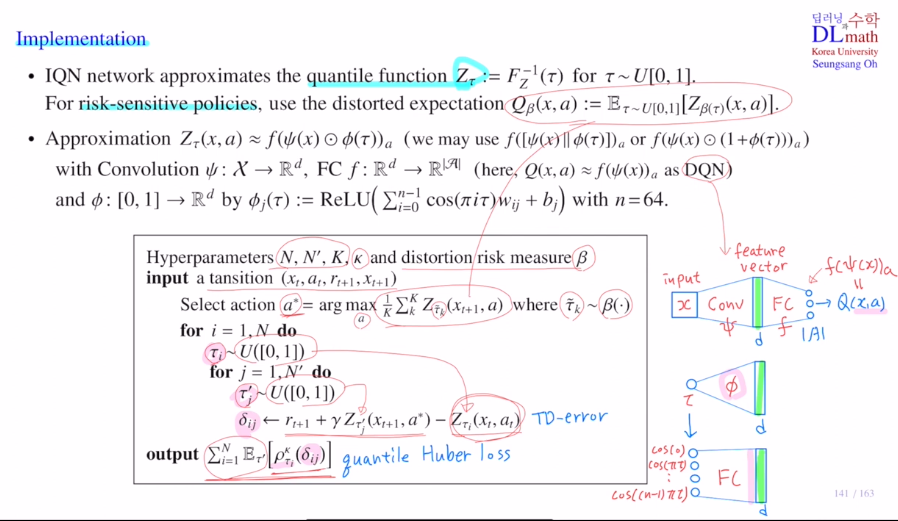 딥러닝과 수학
DL math
Korea University
Seungsang Oh
Implementation
• IQN network approximates the quantile function Z_τ := F_Z^{-1}(τ) for τ ~ U[0, 1].
For risk-sensitive policies, use the distorted expectation Q_β(x, a) := 𝔼_{τ~U[0,1]}[Z_{β(τ)}(x, a)].
• Approximation Z_τ(x, a) ≈ f(ψ(x) ⊙ φ(τ))_a (we may use f([ψ(x) ∥ φ(τ)])_a or f(ψ(x) ⊙ (1+φ(τ)))_a)
with Convolution ψ : 𝒳 → ℝ^d, FC f : ℝ^d → ℝ^{|𝒜|} (here, Q(x, a) ≈ f(ψ(x))_a as DQN)
and φ : [0, 1] → ℝ^d by φ_j(τ) := ReLU(∑_{i=0}^{n−1} cos(πiτ)w_{ij} + b_j) with n = 64.
Hyperparameters N, N′, K, κ and distortion risk measure β
input a tansition (x_t, a_t, r_{t+1}, x_{t+1})
Select action a* = arg max_a 1/K ∑_k^K Z_{τ̃_k}(x_{t+1}, a) where τ̃_k ~ β(·)
for i = 1, N do
τ_i ~ U([0, 1])
for j = 1, N′ do
τ′_j ~ U([0, 1])
δ_{ij} ← r_{t+1} + γ Z_{τ′_j}(x_{t+1}, a*) − Z_{τ_i}(x_t, a_t) TD-error
output ∑_{i=1}^N 𝔼_{τ′}[ρ^κ_{τ_i}(δ_{ij})] quantile Huber loss
feature
vector
input
f(ψ(x))_a
=
x Conv FC → Q(x,a)
ψ d f |A|
τ φ
d
cos(0)
cos(πτ)
:
cos((n-1)πτ)
FC
d
141 / 163